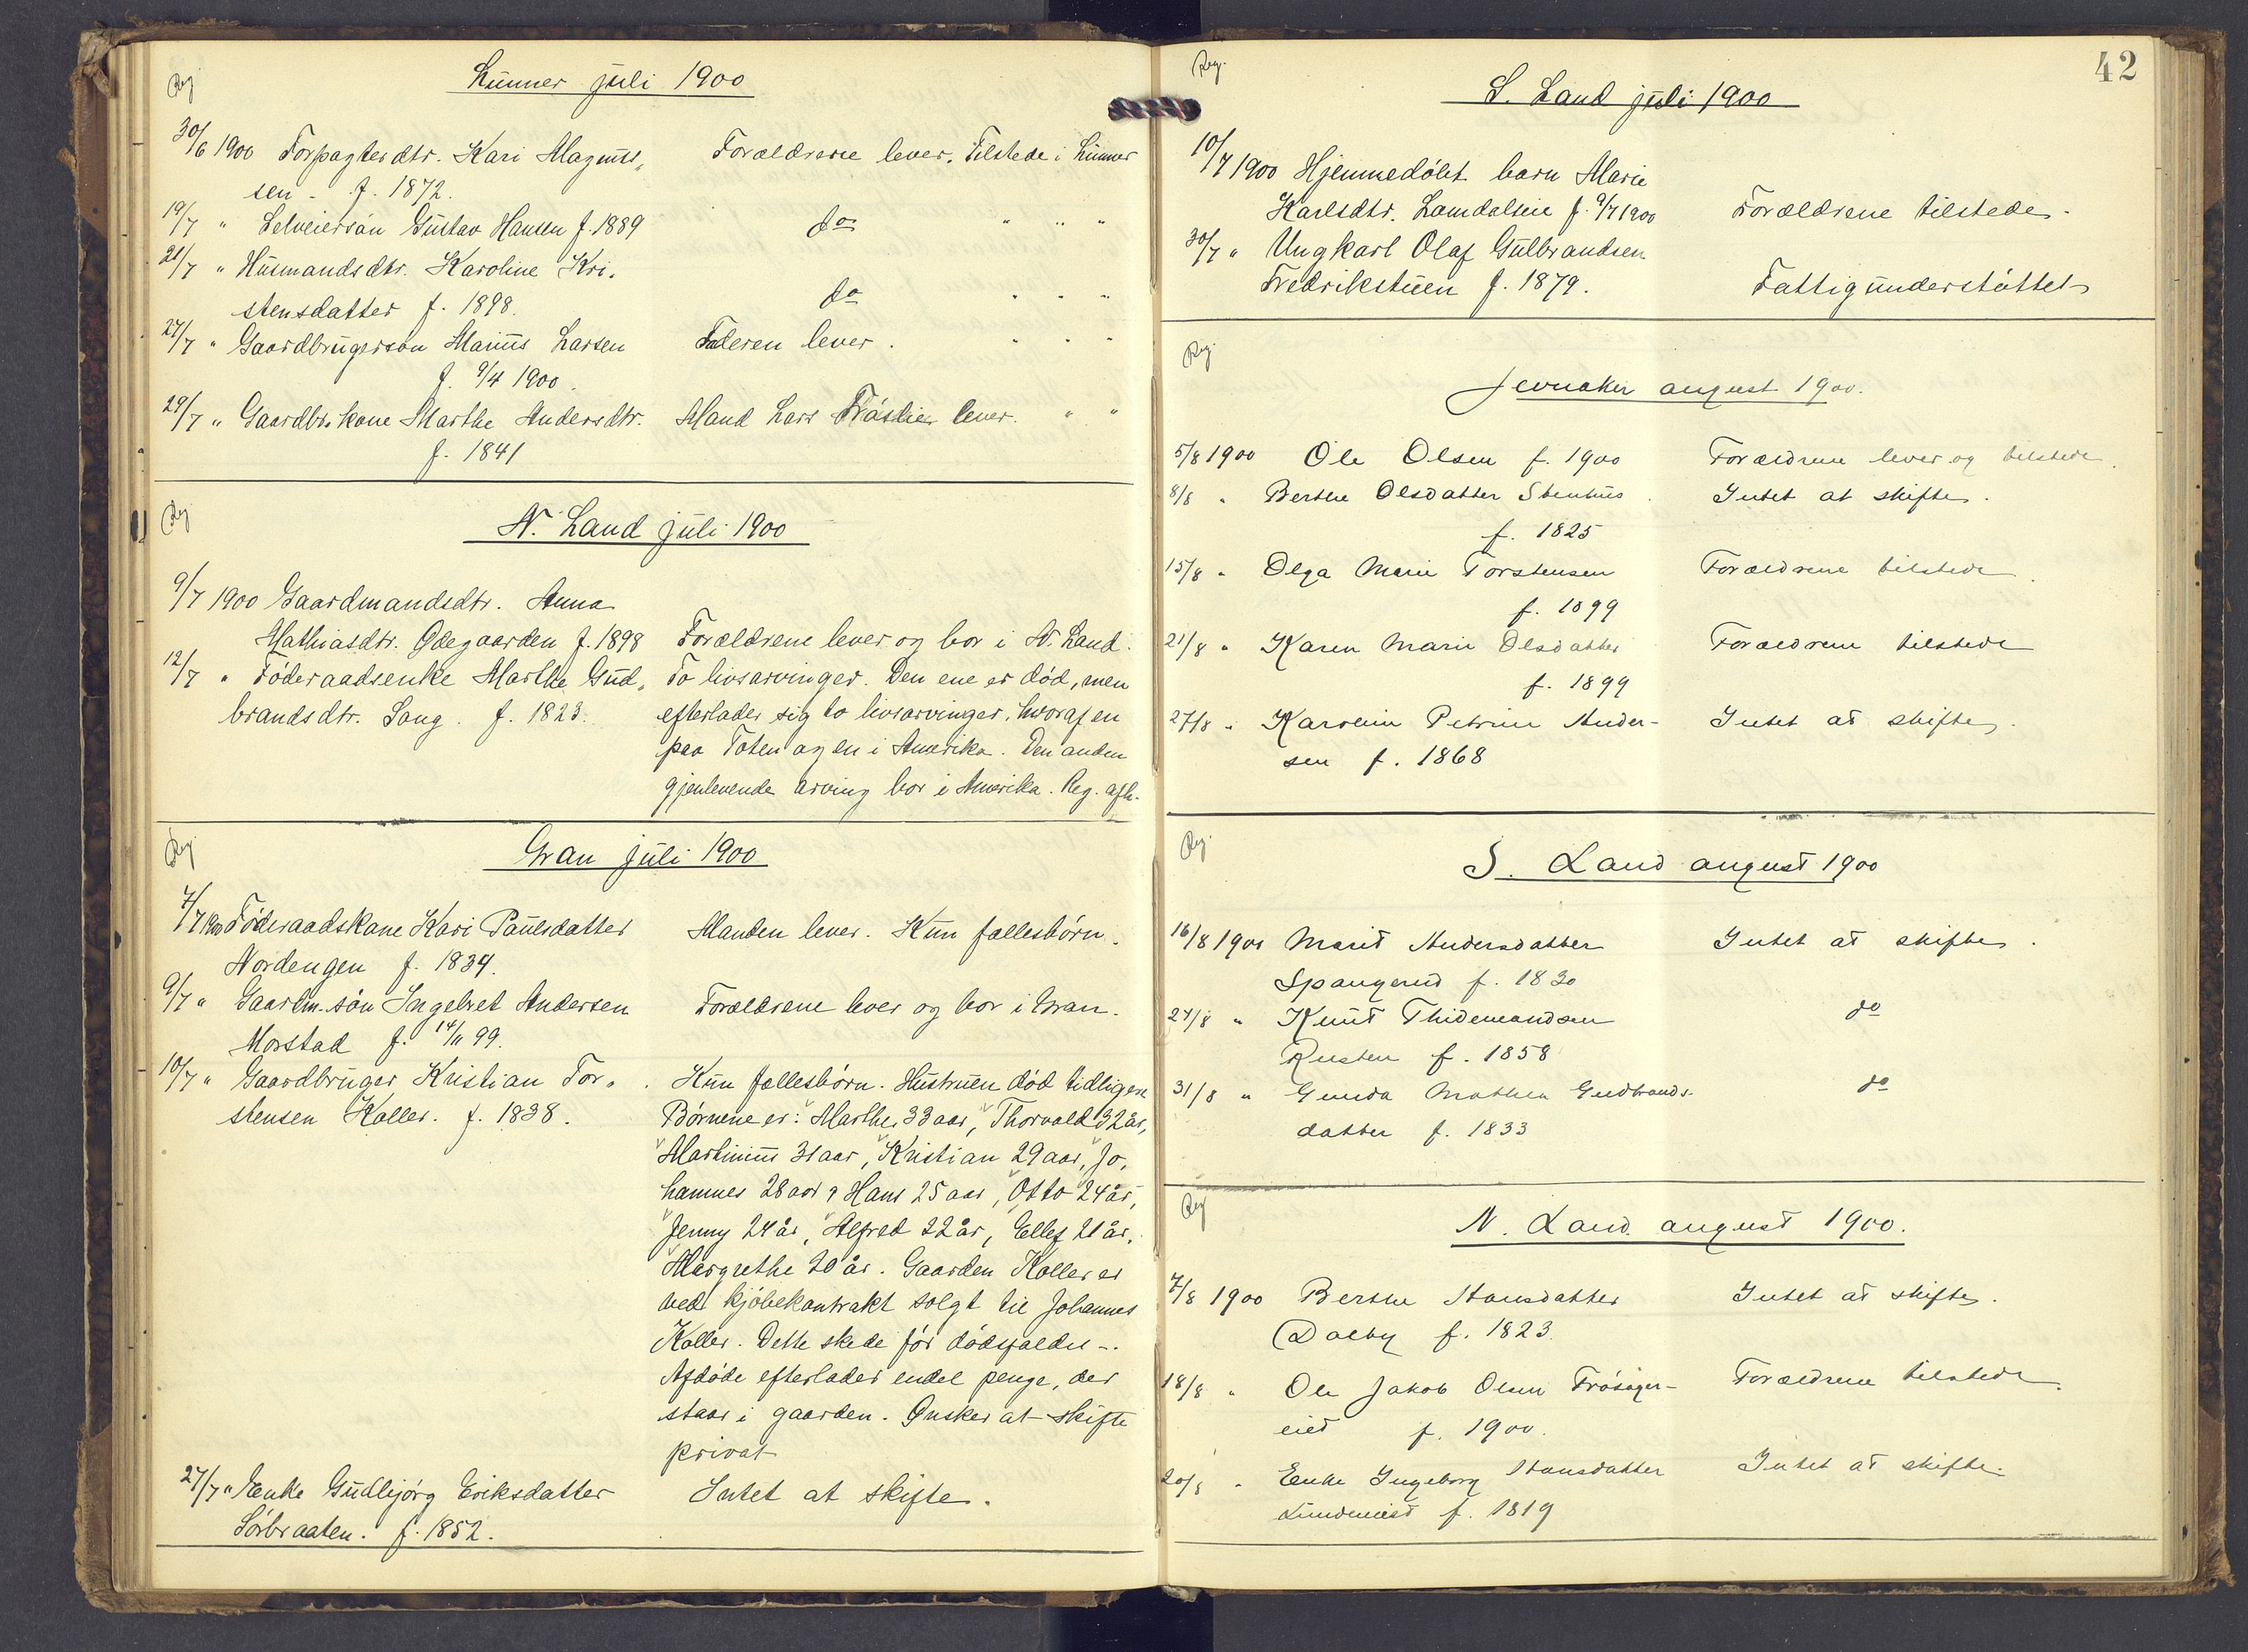 Reg
Lunner juli 1900
30/6 1900 Forpagterdtr. Kari Magnus- Forældrene lever. Tilstede i Lunner
sen - f. 1872.
19/7 " Selveiersön Gustav Hansen f. 1889 do " " "
21/7 " Husmandsdtr. Karoline Kri-
stensdatter f. 1898. do " " "
27/7 " Gaardbrugersön Marius Larsen Faderen lever. " " "
f. 9/4 1900.
29/7 " Gaardbr.kone Marthe Andersdtr. Mand Lars lever. " "
f. 1841
Reg
N. Land juli 1900
9/7 1900 Gaardmandsdtr. Anna
Mathiasdtr. Ødegaarden f. 1898 Forældrene lever og bor i N. Land.
12/7 " Föderaadsenke Marthe Gud- To livsarvinger. Den ene er död, men
brandsdtr. Saug. f. 1823. efterlader sig to livsarvinger, hvoraf en
paa Toten og en i Amerika. Den anden
gjenlevende arving bor i Amerika. Reg. afh.
Reg
Gran juli 1900
7/7 1900 Föderaadskone Kari Paulsdatter Manden lever. Kun fællesbörn.
Nordengen f. 1834.
9/7 " Gaardm.sön Ingebret Andersen Forældrene lever og bor i Gran.
Morstad f. 14/11 99.
10/7 " Gaardbruger Kristian Tor- Kun fællesbörn. Hustruen död tidligere
stensen Koller. f. 1838. Börnene er: Marthe 33 aar, Thorvald 32 år,
Martinius 31 aar, Kristian 29 aar, Jo-
hannes 28 aar, Hans 25 aar, Otto 24 år,
Jenny 24 år, Alfred 22 år, Ellef 21 år,
Margrethe 20 år. Gaarden Koller er
ved kjöbekontrakt solgt til Johannes
Koller. Dette skede för dödsfaldet -.
Afdöde efterlader endel penge, der
staar i gaarden. Ønsker at skifte
privat
27/7 " Enke Gudbjörg Eriksdatter Intet at skifte.
Sörbraaten. f. 1852.
42
Reg.
S. Land juli 1900
10/7 1900 Hjemmedöbt barn Marie
Karlsdtr. Lomdalseie f. 9/7 1900 Forældrene tilstede.
30/7 " Ungkarl Olaf Gulbrandsen
Fredrikstuen f. 1879. Fattigunderstöttet
Reg.
Jevnaker august 1900.
5/8 1900 Ole Olsen f. 1900 Forældrene lever og tilstede.
8/8 " Berthe Olsdatter Stenhus Intet at skifte.
f. 1825
15/8 " Olga Marie Torstensen Forældrene tilstede.
f. 1899
21/8 " Karen Marie Olsdatter Forældrene tilstede
f. 1899
27/8 " Karoline Petrine Ander- Intet at skifte.
sen f. 1868
Reg.
S. Land august 1900
16/8 1900 Marit Andersdatter Intet at skifte.
Spangerud f. 1830
27/8 " Knut Thidemandsen do
Rusten f. 1858
31/8 " Gunda Mathea Gudbrands- do
datter f. 1833
Reg
N. Land august 1900.
7/8 1900 Berthe Hansdatter Intet at skifte.
Dalby f. 1823.
18/8 " Ole Jakob Olsen Frösager- Forældrene tilstede.
eiet f. 1900.
20/8 " Enke Ingeborg Hansdatter Intet at skifte.
f. 1819